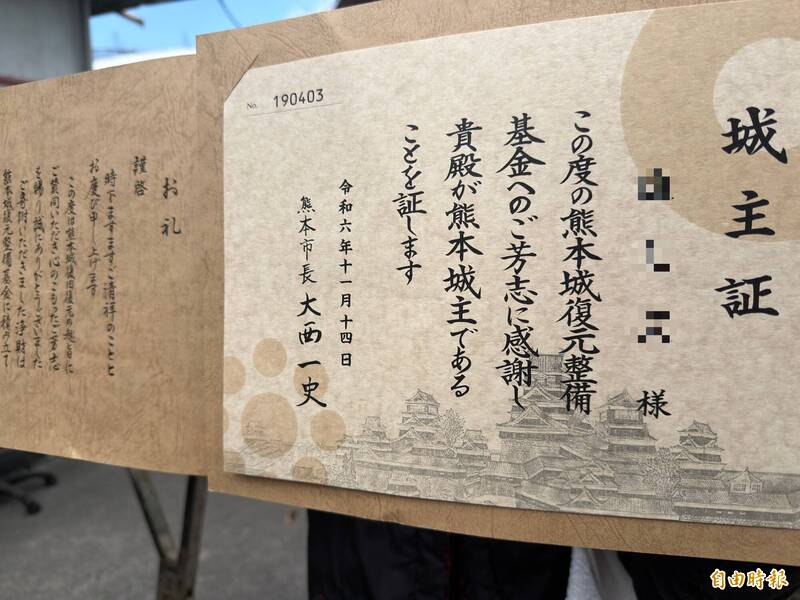 No. 190403
城主証
様
この度の熊本城復元整備
基金へのご芳志に感謝し
貴殿が熊本城主である
ことを証します
令和六年十一月十四日
熊本市長 大西一史
お礼
謹啓
時下ますますご清祥のことと
お慶び申し上げます
この度は熊本城復旧復元の趣旨に
ご賛同いただき心のこもったご芳志
を賜り誠にありがとうございました
ご寄附いただきました浄財は
熊本城復元整備基金に積み立て
自由時報